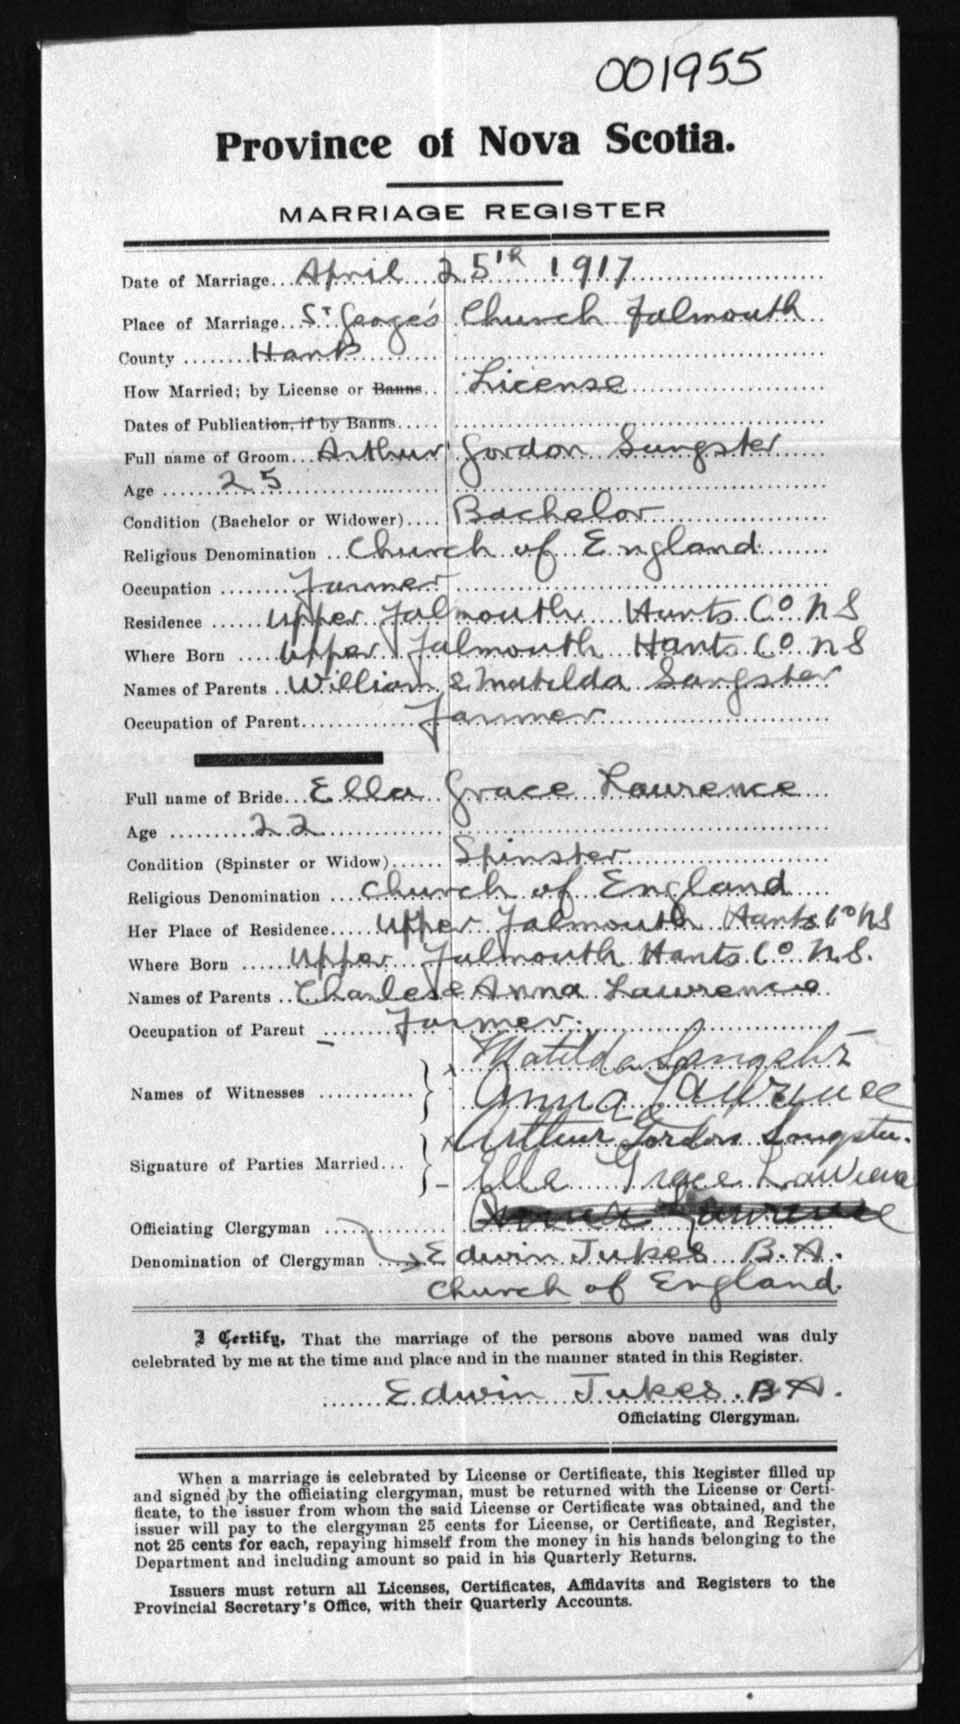 001955
Province of Nova Scotia.
MARRIAGE REGISTER
Date of Marriage... April 25th 1917
Place of Marriage... St George's Church Falmouth
County ........ Hants
How Married; by License or Banns.. License
Dates of Publication, if by Banns.....
Full name of Groom... Arthur Gordon Sangster
Age ....... 25
Condition (Bachelor or Widower).... Bachelor
Religious Denomination .. Church of England
Occupation ........ Farmer
Residence ...... Upper Falmouth Hants Co N S
Where Born .... Upper Falmouth Hants Co N S
Names of Parents .. William & Matilda Sangster
Occupation of Parent........ Farmer
Full name of Bride... Ella Grace Lawrence
Age ......... 22
Condition (Spinster or Widow)...... Spinster
Religious Denomination ... Church of England
Her Place of Residence..... Upper Falmouth Hants Co NS
Where Born ..... Upper Falmouth Hants Co N.S.
Names of Parents .. Charles & Anna Lawrence
Occupation of Parent ....... Farmer.
Matilda Sangster
Names of Witnesses ............ Anna Lawrence
Arthur Gordon Sangster.
Signature of Parties Married... Ella Grace Lawrence
Officiating Clergyman ............ Anna Lawrence
Denomination of Clergyman .... Edwin Jukes B.A.
Church of England.
I Certify, That the marriage of the persons above named was duly
celebrated by me at the time and place and in the manner stated in this Register.
Edwin Jukes. B A.
Officiating Clergyman.
When a marriage is celebrated by License or Certificate, this Register filled up
and signed by the officiating clergyman, must be returned with the License or Certi-
ficate, to the issuer from whom the said License or Certificate was obtained, and the
issuer will pay to the clergyman 25 cents for License, or Certificate, and Register,
not 25 cents for each, repaying himself from the money in his hands belonging to the
Department and including amount so paid in his Quarterly Returns.
Issuers must return all Licenses, Certificates, Affidavits and Registers to the
Provincial Secretary's Office, with their Quarterly Accounts.